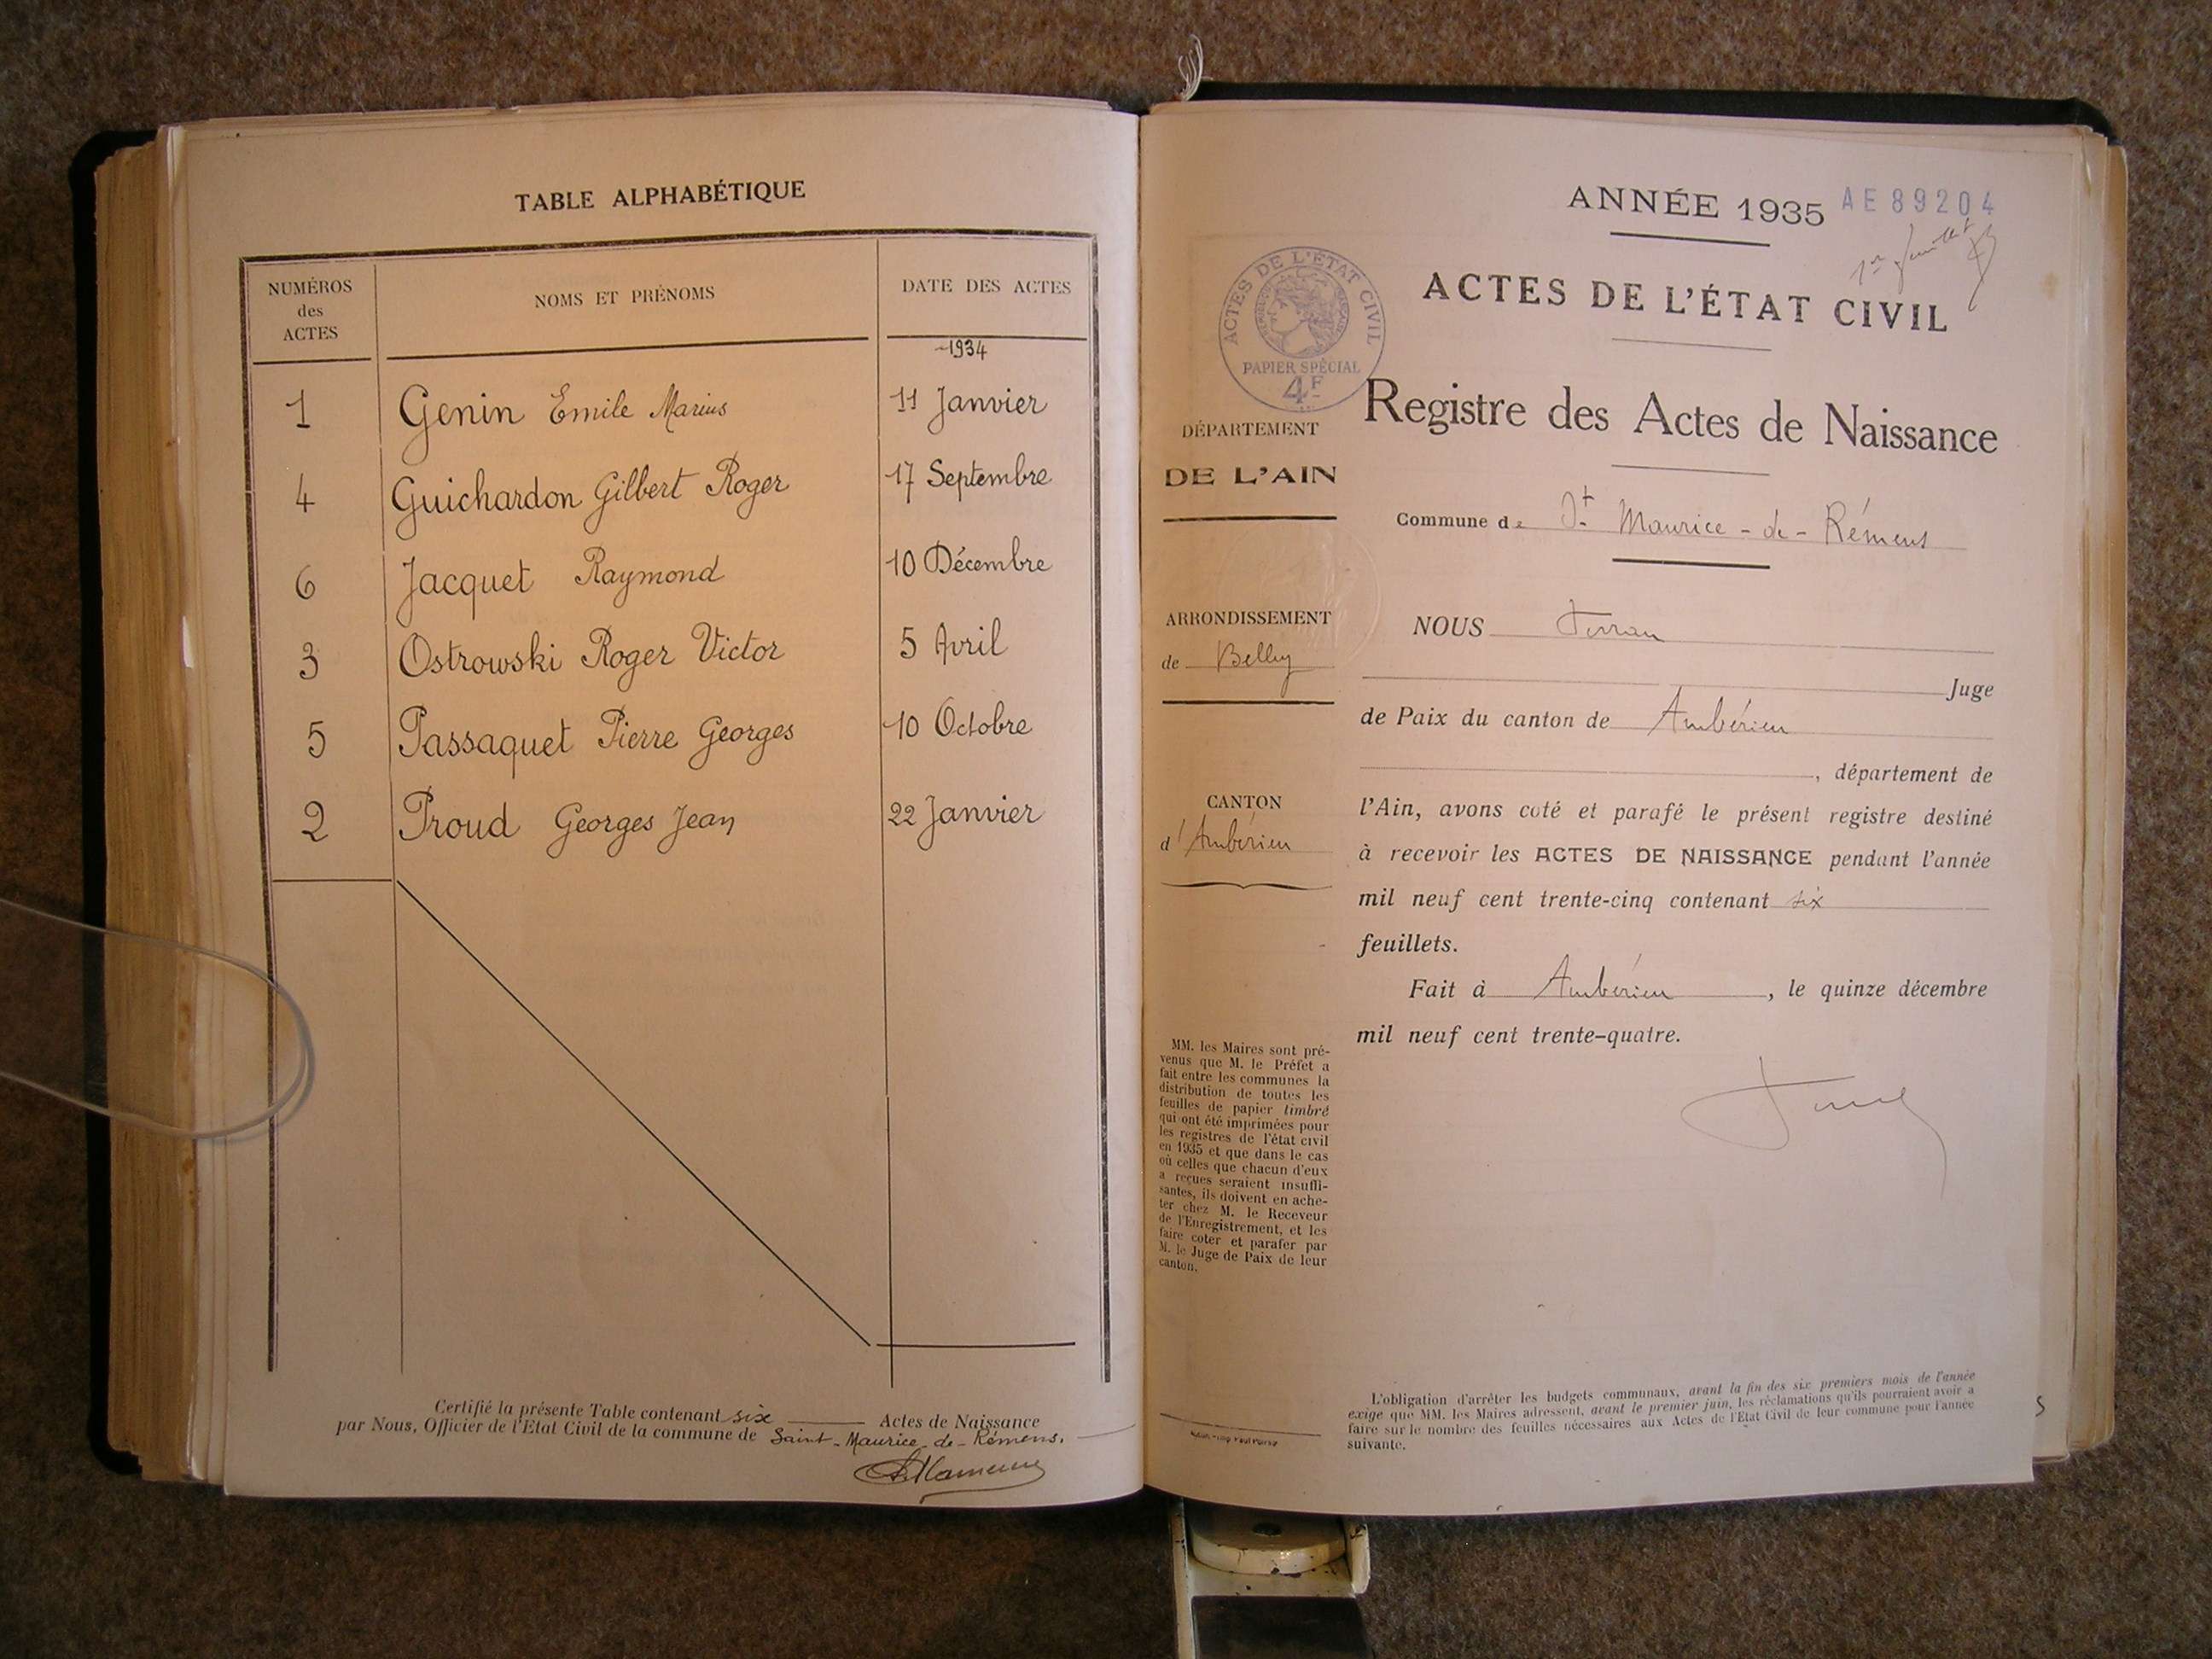 TABLE ALPHABÉTIQUE
NUMÉROS
des
ACTES
NOMS ET PRÉNOMS
DATE DES ACTES
1934
1 Genin Emile Marius 11 Janvier
4 Guichardon Gilbert Roger 17 Septembre
6 Jacquet Raymond 10 Décembre
3 Ostrowski Roger Victor 5 Avril
5 Passaquet Pierre Georges 10 Octobre
2 Proud Georges Jean 22 Janvier
Certifié la présente Table contenant six Actes de Naissance
par Nous, Officier de l'Etat Civil de la commune de Saint-Maurice-de-Rémens.
ANNÉE 1935 AE 89204
1er feuillet
ACTES DE L'ÉTAT CIVIL
ACTES DE L'ÉTAT CIVIL
RÉPUBLIQUE FRANÇAISE
PAPIER SPÉCIAL
4F
Registre des Actes de Naissance
DÉPARTEMENT
DE L'AIN
Commune de St Maurice-de-Rémens
ARRONDISSEMENT
de Belley
CANTON
d'Ambérieu
NOUS
Juge
de Paix du canton de Ambérieu
, département de
l'Ain, avons coté et parafé le présent registre destiné
à recevoir les ACTES DE NAISSANCE pendant l'année
mil neuf cent trente-cinq contenant six
feuillets.
Fait à Ambérieu, le quinze décembre
mil neuf cent trente-quatre.
MM. les Maires sont pré-
venus que M. le Préfet a
fait entre les communes la
distribution de toutes les
feuilles de papier timbré
qui ont été imprimées pour
les registres de l'état civil
en 1935 et que dans le cas
où celles que chacun d'eux
a reçues seraient insuffi-
santes, ils doivent en ache-
ter chez M. le Receveur
de l'Enregistrement, et les
faire coter et parafer par
M. le Juge de Paix de leur
canton.
L'obligation d'arrêter les budgets communaux, avant la fin des six premiers mois de l'année
exige que MM. les Maires adressent, avant le premier juin, les réclamations qu'ils pourraient avoir à
faire sur le nombre des feuilles nécessaires aux Actes de l'Etat Civil de leur commune pour l'année
suivante.